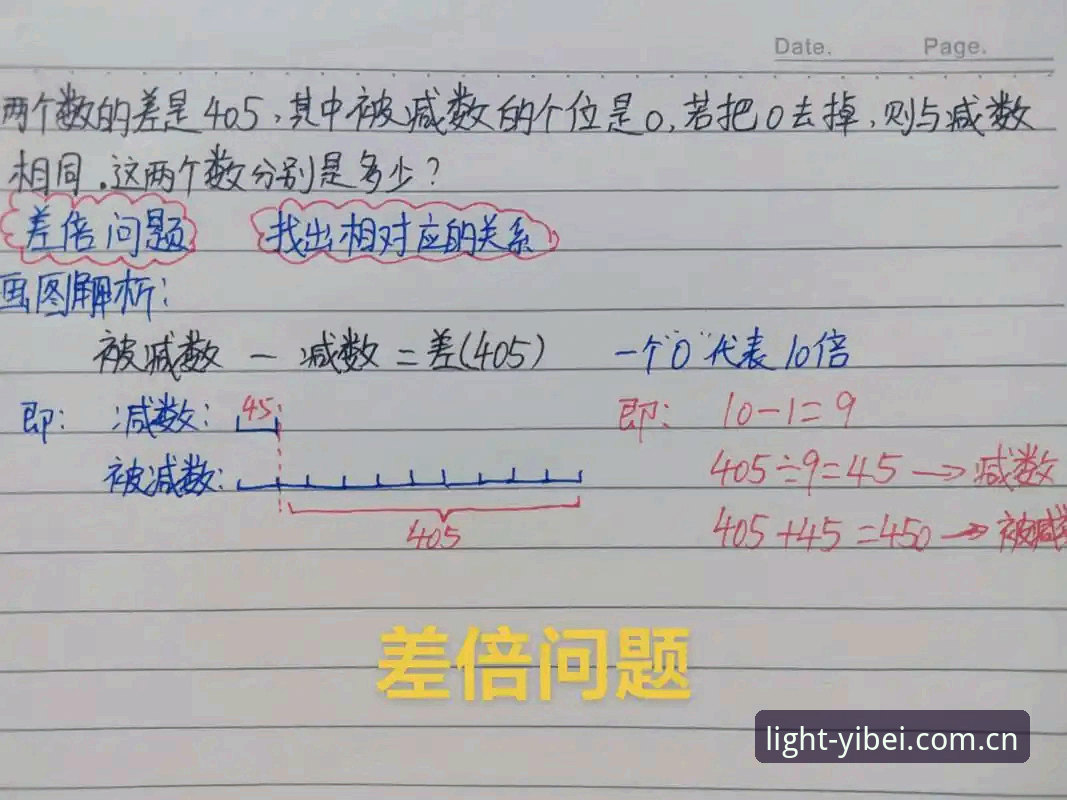 Date. Page.
两个数的差是405,其中被减数的个位是0,若把0去掉,则与减数
相同.这两个数分别是多少?
差倍问题 找出相对应的关系
画图解析:
被减数 - 减数 = 差(405) 一个"0"代表10倍
即: 减数: 45 即: 10-1=9
被减数: 405÷9=45 → 减数
405 405+45=450 → 被减数
差倍问题
light-yibei.com.cn